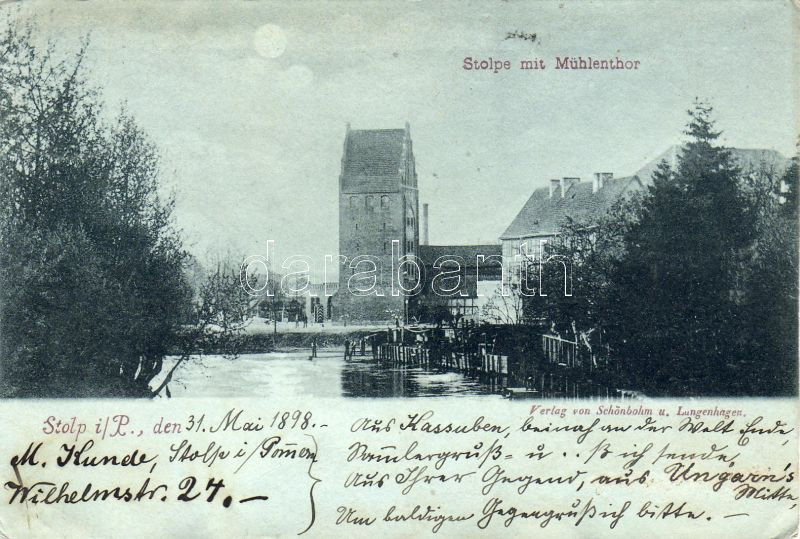 Stolpe mit Mühlenthor
darabanth
Verlag von Schönbohm u. Langenhagen.
Stolp i/P., den 31. Mai 1898.-
M. Kunde, Stolp i/Pom̄ern
Wilhelmstr. 24.-
Aus Kassuben, beinah an der Welt Ende,
Sam̄lergruß- u . . ß ich sende,
Aus Ihrer Gegend, aus Ungarn's
Mitte,
Um baldigen Gegengruß ich bitte.-